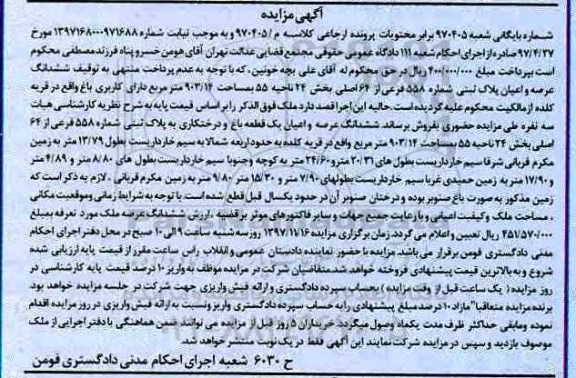 آگهی مزایده
شماره بایگانی شعبه ۹۷۰۴۰۵ برابر محتویات پرونده ارجاعی کلاسه م/۹۷۰۴۰۵ و به موجب نیابت شماره ۱۳۹۷۱۶۸۰۰۰۹۷۱۶۸۸ مورخ
۹۷/۴/۲۷ صادره از اجرای احکام شعبه ۱۱۱ دادگاه عمومی حقوقی مجتمع قضایی عدالت تهران آقای هومن خسرو پناه فرزند مصطفی محکوم
است بپرداخت مبلغ ۴۰۰/۰۰۰/۰۰۰ ریال در حق محکوم له آقای علی بچه خونین ، که با توجه به عدم پرداخت منتهی به توقیف ششدانگ
عرصه و اعیان پلاک ثبتی شماره ۵۵۸ فرعی از ۶۴ اصلی بخش ۲۴ ناحیه ۵۵ بمساحت ۹۰۳/۱۴ متر مربع دارای کاربری باغ واقع در قریه
کلده از مالکیت محکوم علیه گردیده است. حالیه این اجرا قصد دارد ملک فوق الذکر را بر اساس قیمت پایه به شرح نظریه کارشناسی هیات
سه نفره طی مزایده حضوری بفروش برساند. ششدانگ عرصه و اعیان یک قطعه باغ و درختکاری به پلاک ثبتی شماره ۵۵۸ فرعی از ۶۴
اصلی بخش ۲۴ ناحیه ۵۵ بمساحت ۹۰۳/۱۴ متر مربع واقع در قریه کلده به حدود اربعه شمالا به سیم خارداریست بطول ۱۳/۷۹ متر به زمین
مکرم قربانی شرقا سیم خارداریست بطول های ۲۰/۳۱ متر و ۲۴/۶۰ متر به کوچه و جنوبا سیم خارداریست بطول های ۸/۸۰ متر و ۴/۸۹ متر
و ۱۷/۹۰ متر به زمین حمیدی غربا سیم خارداریست بطولهای ۷/۹۰ متر و ۱۵/۳۰ متر ۹/۸۰ متر به زمین مکرم قربانی . لازم به ذکر است که
زمین مذکور به صورت باغ صنوبر بوده و درختان صنوبر آن در حدود یکسال قبل قطع شده است. با توجه به شرایط زمانی و موقعیت مکانی
، مساحت ملک و کیفیت اعیانی و با رعایت جمیع جهات و سایر فاکتورهای موثر بر قضیه ، ارزش ششدانگ عرصه ملک مورد تعرفه بمبلغ
۴۵۱/۵۷۰/۰۰۰ ریال تعیین و اعلام می گردد. زمان برگزاری مزایده ۱۳۹۷/۱۱/۱۶ روز سه شنبه ساعت ۹ الی ۱۰ صبح در محل دفتر اجرای احکام
مدنی دادگستری فومن برقرار می باشد. مزایده با حضور نماینده دادستان عمومی و انقلاب راس ساعت مقرر از قیمت پایه ارزیابی شده
شروع و به بالاترین قیمت پیشنهادی فروخته خواهد شد. متقاضیان شرکت در مزایده موظف به واریز ۱۰ درصد قیمت پایه کارشناسی در
روز مزایده ( یک ساعت قبل از وقت مزایده ) بحساب سپرده دادگستری و ارائه فیش واریزی جهت شرکت در جلسه مزایده خواهد بود.
برنده مزایده متعاقبا" مازاد ۱۰ درصد مبلغ پیشنهادی را به حساب سپرده دادگستری واریز و نسبت به ارائه فیش واریزی در روز مزایده اقدام
نموده و مابقی حداکثر ظرف مدت یکماه وصول میگردد. خریداران ۵ روز قبل از مزایده می توانند ضمن هماهنگی با دفتر اجرایی از ملک
موصوف بازدید و سپس در مزایده شرکت نمایند این آگهی فقط در یک نوبت منتشر خواهد شد.
ح ۶۰۳۰ شعبه اجرای احکام مدنی دادگستری فومن